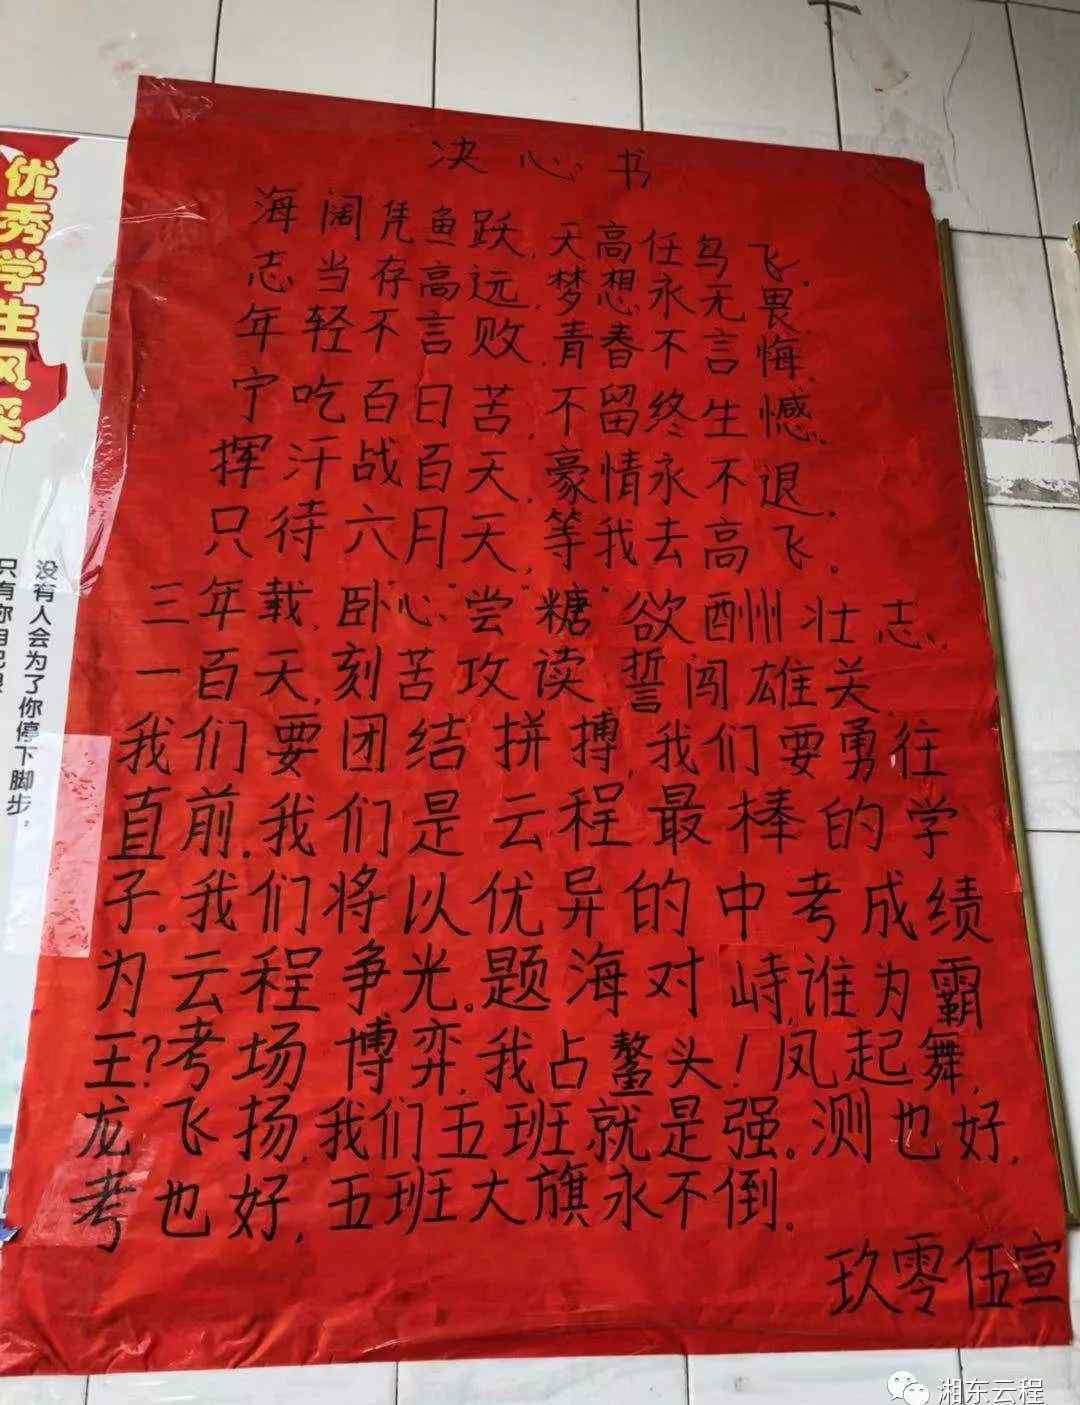 决心书
海阔凭鱼跃,天高任鸟飞.
志当存高远,梦想永无畏.
年轻不言败,青春不言悔.
宁吃百日苦,不留终生憾.
挥汗战百天,豪情永不退.
只待六月天,等我去高飞.
三年载,卧"心"尝"糖"欲酬壮志,
一百天,刻苦攻读誓闯雄关.
我们要团结拼搏,我们要勇往
直前.我们是云程最棒的学
子.我们将以优异的中考成绩
为云程争光.题海对峙,谁为霸
王?考场博弈,我占鳌头!凤起舞,
龙飞扬,我们五班就是强.测也好,
考也好,五班大旗永不倒.
玖零伍宣
优秀学生风采
没有人会为了你停下脚步,
只有你自己
湘东云程